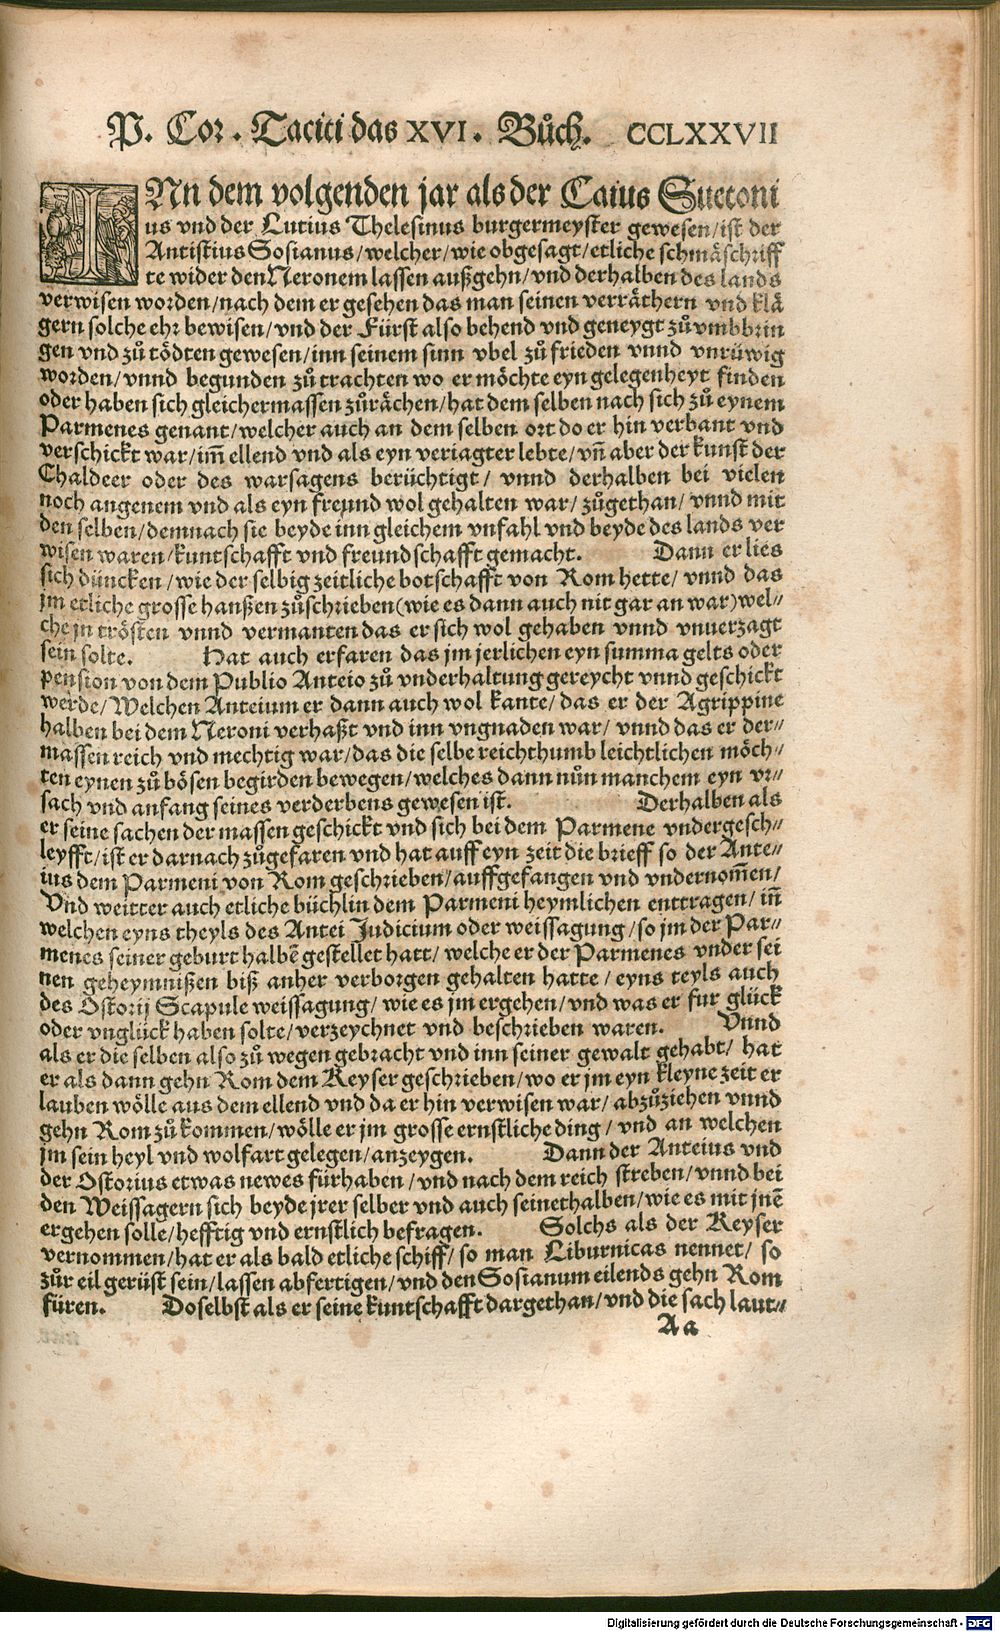 P. Cor. Taciti das XVI. Bůch. CCLXXVII
INn dem volgenden jar als der Caius Suetoni
us vnd der Lutius Thelesinus burgermeyster gewesen/ist der
Antistius Sosianus/welcher/wie obgesagt/etliche schmäschriff
te wider den Neronem lassen außgehn/vnd derhalben des lands
verwisen worden/nach dem er gesehen das man seinen verräthern vnd klä
gern solche ehr bewisen/vnd der Fürst also behend vnd geneygt zů vmbbrin
gen vnd zů tödten gewesen/inn seinem sinn vbel zů frieden vnnd vnrüwig
worden/vnnd begunden zů trachten wo er möchte eyn gelegenheyt finden
oder haben sich gleichermassen zůrächen/hat dem selben nach sich zů eynem
Parmenes genant/welcher auch an dem selben ort do er hin verbant vnd
verschickt war/im̃ ellend vnd als eyn veriagter lebte/vñ aber der kunst der
Chaldeer oder des warsagens berüchtigt/ vnnd derhalben bei vielen
noch angenem vnd als eyn freund wol gehalten war/zůgethan/vnnd mit
den selben/demnach sie beyde inn gleichem vnfahl vnd beyde des lands ver
wisen waren/kuntschafft vnd freundschafft gemacht. Dann er lies
sich düncken/wie der selbig zeitliche botschafft von Rom hette/vnnd das
jm etliche grosse hanßen zůschrieben(wie es dann auch nit gar an war)wel⸗
che jn trösten vnnd vermanten das er sich wol gehaben vnnd vnuerzagt
sein solte. Hat auch erfaren das jm jerlichen eyn summa gelts oder
pension von dem Publio Anteio zů vnderhaltung gereycht vnnd geschickt
werde/Welchen Anteium er dann auch wol kante/das er der Agrippine
halben bei dem Neroni verhaßt vnd inn vngnaden war/vnnd das er der⸗
massen reich vnd mechtig war/das die selbe reichthumb leichtlichen möch⸗
ten eynen zů bösen begirden bewegen/welches dann nůn manchem eyn vr⸗
sach vnd anfang seines verderbens gewesen ist. Derhalben als
er seine sachen der massen geschickt vnd sich bei dem Parmene vndergesch⸗
leyfft/ist er darnach zůgefaren vnd hat auff eyn zeit die brieff so der Ante⸗
ius dem Parmeni von Rom geschrieben/auffgefangen vnd vndernom̃en/
Vnd weitter auch etliche büchlin dem Parmeni heymlichen enttragen/iñ
welchen eyns theyls des Antei Judicium oder weissagung/so jm der Par⸗
menes seiner geburt halbẽ gestellet hatt/welche er der Parmenes vnder sei
nen geheymnißen biß anher verborgen gehalten hatte/eyns teyls auch
des Ostorij Scapule weissagung/wie es jm ergehen/vnd was er fur glück
oder vnglück haben solte/verzeychnet vnd beschrieben waren. Vnnd
als er die selben also zů wegen gebracht vnd inn seiner gewalt gehabt/hat
er als dann gehn Rom dem Keyser geschrieben/wo er jm eyn kleyne zeit er
lauben wölle aus dem ellend vnd da er hin verwisen war/abzůziehen vnnd
gehn Rom zů kommen/wölle er jm grosse ernstliche ding/vnd an welchen
jm sein heyl vnd wolfart gelegen/anzeygen. Dann der Anteius vnd
der Ostorius etwas newes fürhaben/vnd nach dem reich streben/vnnd bei
den Weissagern sich beyde jrer selber vnd auch seinethalben/wie es mit jnẽ
ergehen solle/hefftig vnd ernstlich befragen. Solchs als der Keyser
vernommen/hat er als bald etliche schiff/so man Liburnicas nennet/ so
zůr eil gerüst sein/lassen abfertigen/vnd den Sosianum eilends gehn Rom
füren. Doselbst als er seine kuntschafft dargethan/vnd die sach laut⸗
Aa
Digitalisierung gefördert durch die Deutsche Forschungsgemeinschaft - DFG